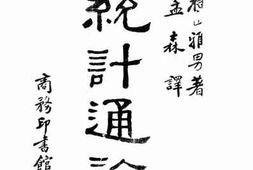 山雅男著
孟森譯
統計通論
商務印書館